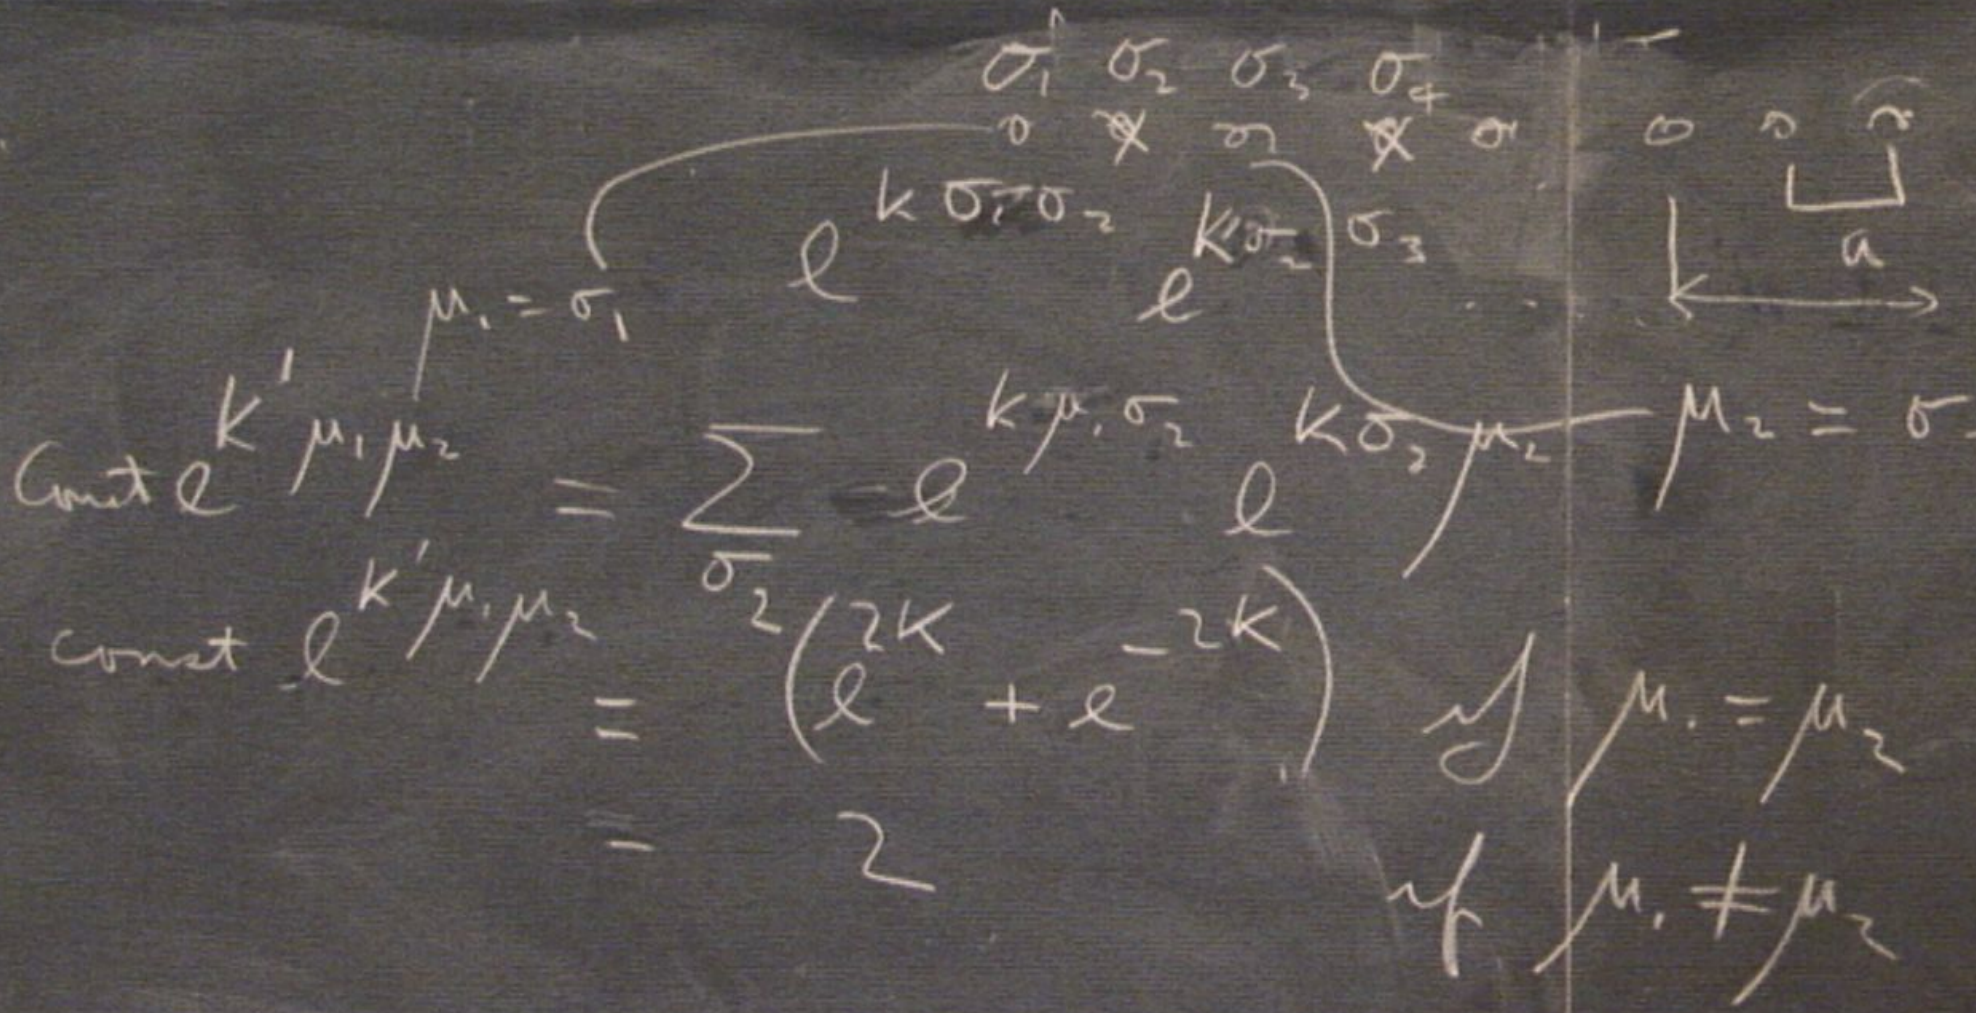 σ₁ σ₂ σ₃ σ₄
o o o o o o o
e^{Kσ₁σ₂} e^{Kσ₂σ₃}
a
μ₁ = σ₁
Const e^{K'μ₁μ₂} = Σ_{σ₂} e^{Kμ₁σ₂} e^{Kσ₂μ₂} μ₂ = σ
const e^{K'μ₁μ₂} = (e^{2K} + e^{-2K}) if μ₁ = μ₂
= 2 if μ₁ ≠ μ₂